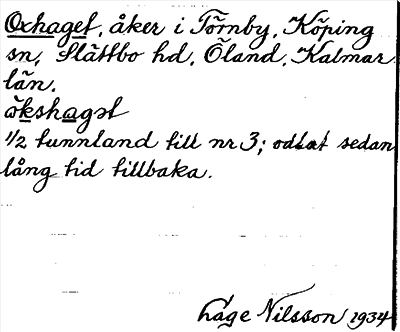 Oxhaget, åker i Törnby, Köping
sn, Slättbo hd, Öland, Kalmar
län.
ωkshagət
1/2 tunnland till nr 3; odlat sedan
lång tid tillbaka.
Låge Nilsson 1934